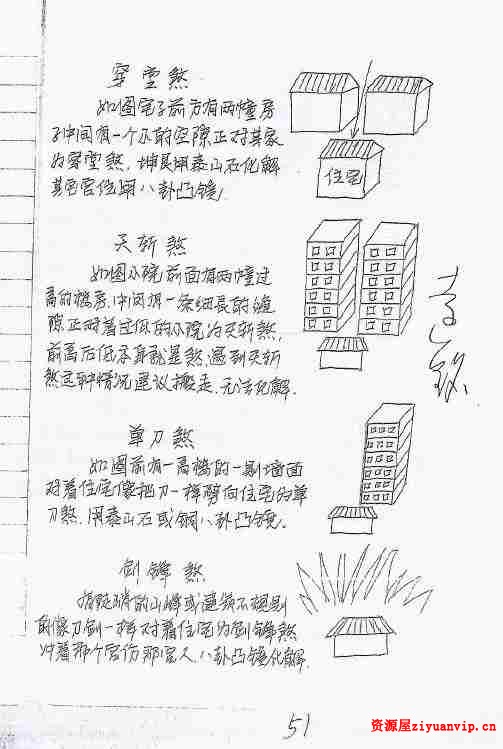 穿堂煞
如图宅子前方有两幢房
子中间有一个小的空隙正对其家
为穿堂煞，坤艮用泰山石化解
其它宫位用八卦凸镜，
住宅
天斩煞
如图小院前面有两幢过
高的楼房，中间有一条细长的缝
隙正对着过低的小院为天斩煞，
前高后低本身就是煞，遇到天斩
煞这种情况建议搬走，无法化解．
单刀煞
如图前有一高楼的一则墙面
对着住宅像把刀一样劈向住宅为单
刀煞．用泰山石或铜八卦凸镜。
剑锋煞
的山峰或建筑不规则
的像刀剑一样对着住宅为剑锋煞
冲着那个宫伤那宫人，八卦凸镜化解．
51
资源屋ziyuanvip.cn